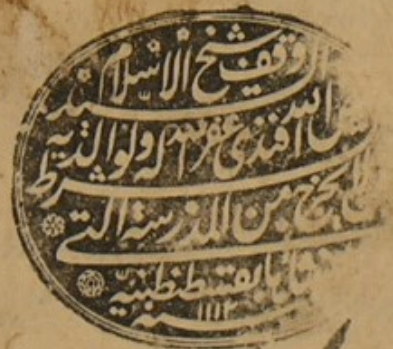 وقف شيخ الاسلام
السيد
الله افندى غفر الله له ولوالديه
بشرط
لا يخرج من المدرسة التى
بقسطنطينية
سنه ١١١٢